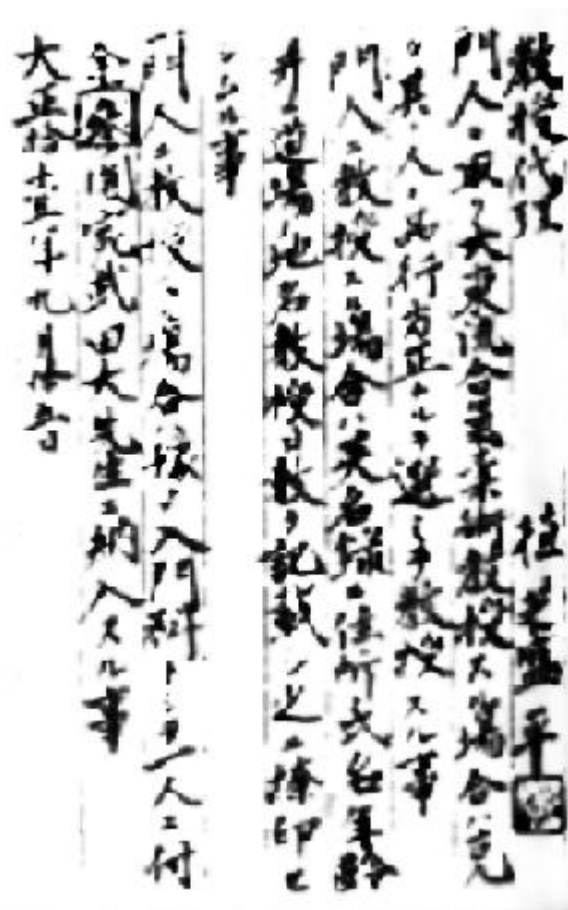 教授代理 植芝盛平
門人ヲ取リ大東流合気柔術教授スル場合ハ先
ツ其ノ人ノ品行方正ナルヲ選ミテ教授スル事
門人ニ教授スル場合ハ英名録ニ住所氏名年齢
并ニ道場地名教授日数ヲ記載シ之ニ捺印セ
シムル事
門人ニ教授ノ場合ハ入門料トシテ一人ニ付
金参円宛武田大先生ニ納入スル事
大正拾壹年九月拾五日